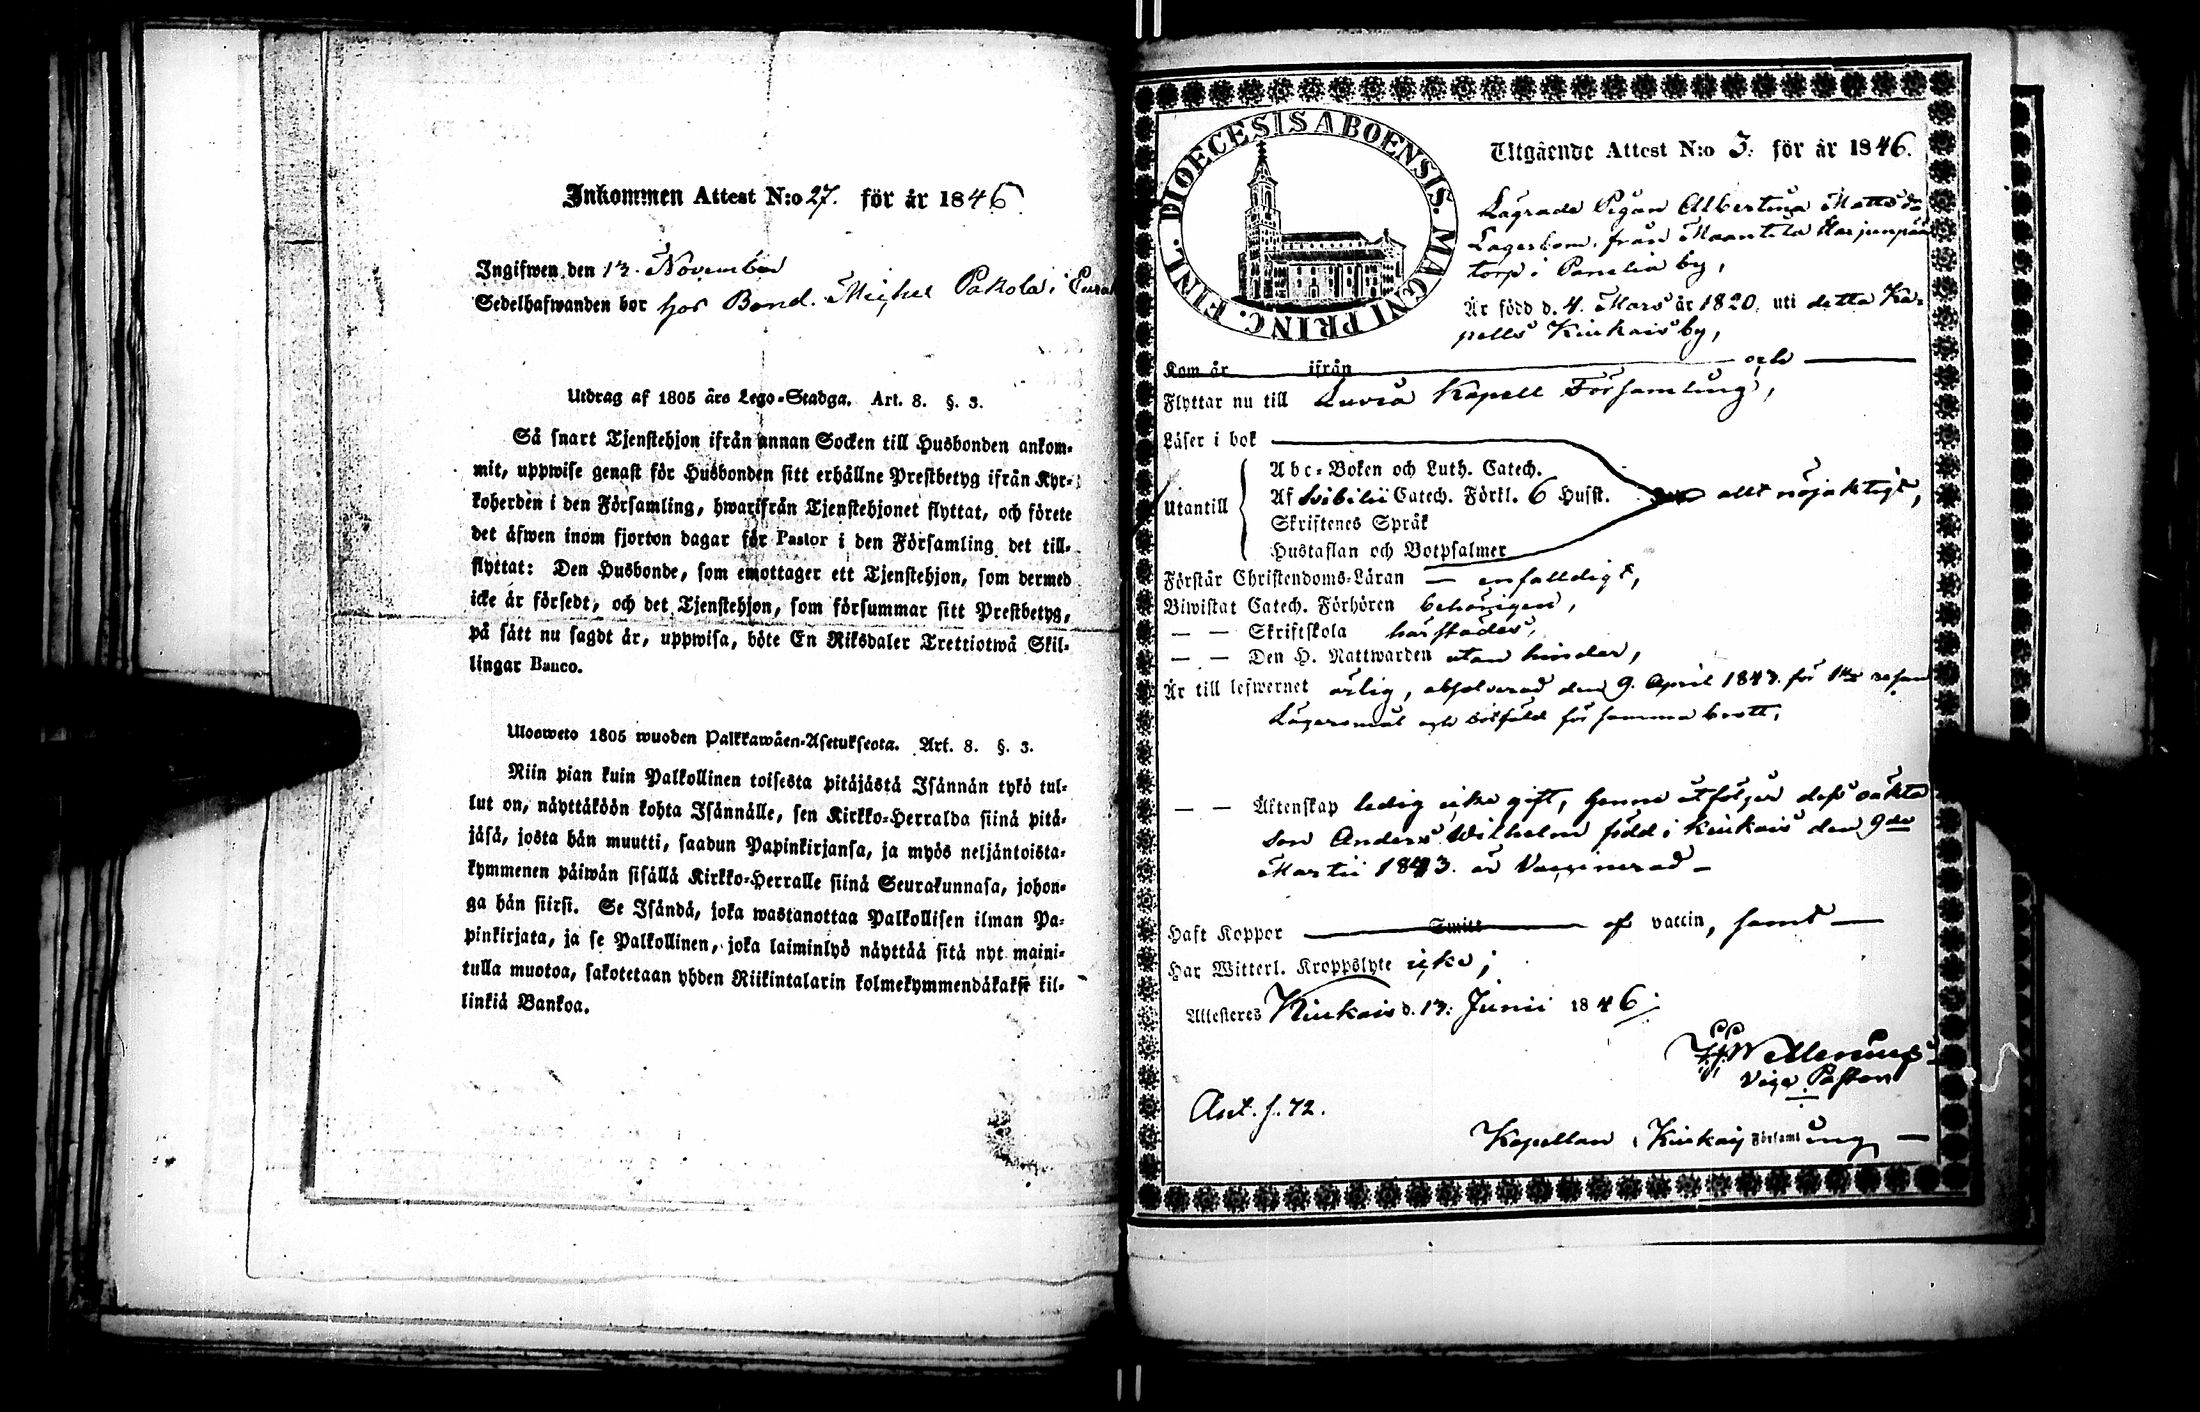 Inkommen Attest N:o 27. för år 1846.
Ingifwen den 13. November
Sedelhafwanden bor hos Bond. Michel Pakola i Eura
Utdrag af 1805 års Lego-Stadga. Art. 8. §. 3.
Så snart Tjenstehjon ifrån annan Socken till Husbonden ankom-
mit, uppwise genast för Husbonden sitt erhållne Prestbetyg ifrån Kyr-
koherden i den Församling, hwarifrån Tjenstehjonet flyttat, och förete
det äfwen inom fjorton dagar för Pastor i den Församling det till-
flyttat: Den Husbonde, som emottager ett Tjenstehjon, som dermed
icke är försedt, och det Tjenstehjon, som försummar sitt Prestbetyg,
på sätt nu sagdt är, uppwisa, böte En Riksdaler Trettiotwå Skil-
lingar Banco.
Ulosweto 1805 wuoden Palkkawäen-Asetuksesta. Art. 8. §. 3.
Niin pian kuin Palkollinen toisesta pitäjästä Isännän tykö tul-
lut on, näyttäköön kohta Isännälle, sen Kirkko-Herralda siinä pitä-
jäsä, josta hän muutti, saadun Papinkirjansa, ja myös neljäntoista-
kymmenen päiwän sisällä Kirkko-Herralle siinä Seurakunnasa, johon-
ga hän siirsi. Se Isändä, joka wastanottaa Palkollisen ilman Pa-
pinkirjata, ja se Palkollinen, joka laiminlyö näyttää sitä nyt maini-
tulla muotoa, sakotetaan yhden Riikintalarin kolmekymmendäkakse kil-
linkiä Bankoa.
DIOECESIS ABOENSIS. MAGNI PRINC. FINL.
Utgående Attest N:o 3. för år 1846.
Lägrade Pigan Albertina Mattsdr
Lagerbom, från Maantila Harjunpää
torp i Panelia by,
Är född d. 4. Mars år 1820. uti detta Ka-
pells Kiukais by,
Kom år ifrån och
Flyttar nu till Luvia Kapell Församling,
Läser i bok
Utantill
Abc-Boken och Luth. Catech.
Af Svibilii Catech. Förkl. 6 Husst. allt nöjaktigt,
Skriftenes Språk
Hustaflan och Botpsalmer
Förstår Christendoms-Läran — enfalldigt,
Biwistat Catech. Förhören behörigen,
— — Skriftskola härstädes,
— — Den H. Nattwarden utan hinder,
Är till lefwernet ärlig, absolverad den 9. April 1843. för 1sta resan
Lägersmål och bötfäld för samma brott,
— — Äktenskap ledig icke gift, henne åtföljer dess oäkta
son Anders Wilhelm född i Kiukais den 9de
Martii 1843. är Vaccinerad —
Haft Koppor Smitt af vaccin, samt —
Har Witterl. Kroppslyte icke;
Attesteres Kiukais d. 13. Junii 1846.
Vice Pastor
Ant. s. 72.
Kapellan i Kiukais Församling —